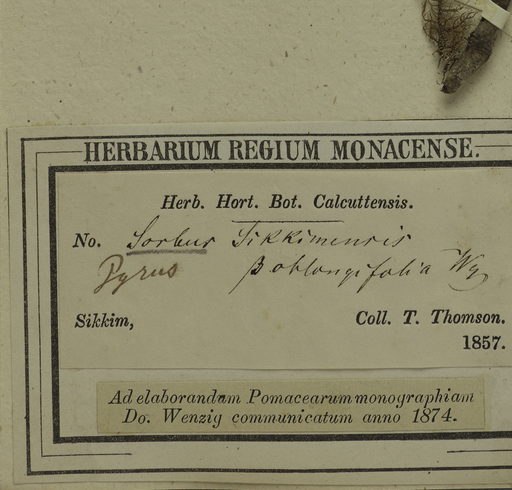 HERBARIUM REGIUM MONACENSE.
Herb. Hort. Bot. Calcuttensis.
No. Sorbus Sikkimensis
Pyrus β oblongifolia Wg.
Sikkim, Coll. T. Thomson.
1857.
Ad elaborandam Pomacearum monographiam
Do. Wenzig communicatum anno 1874.